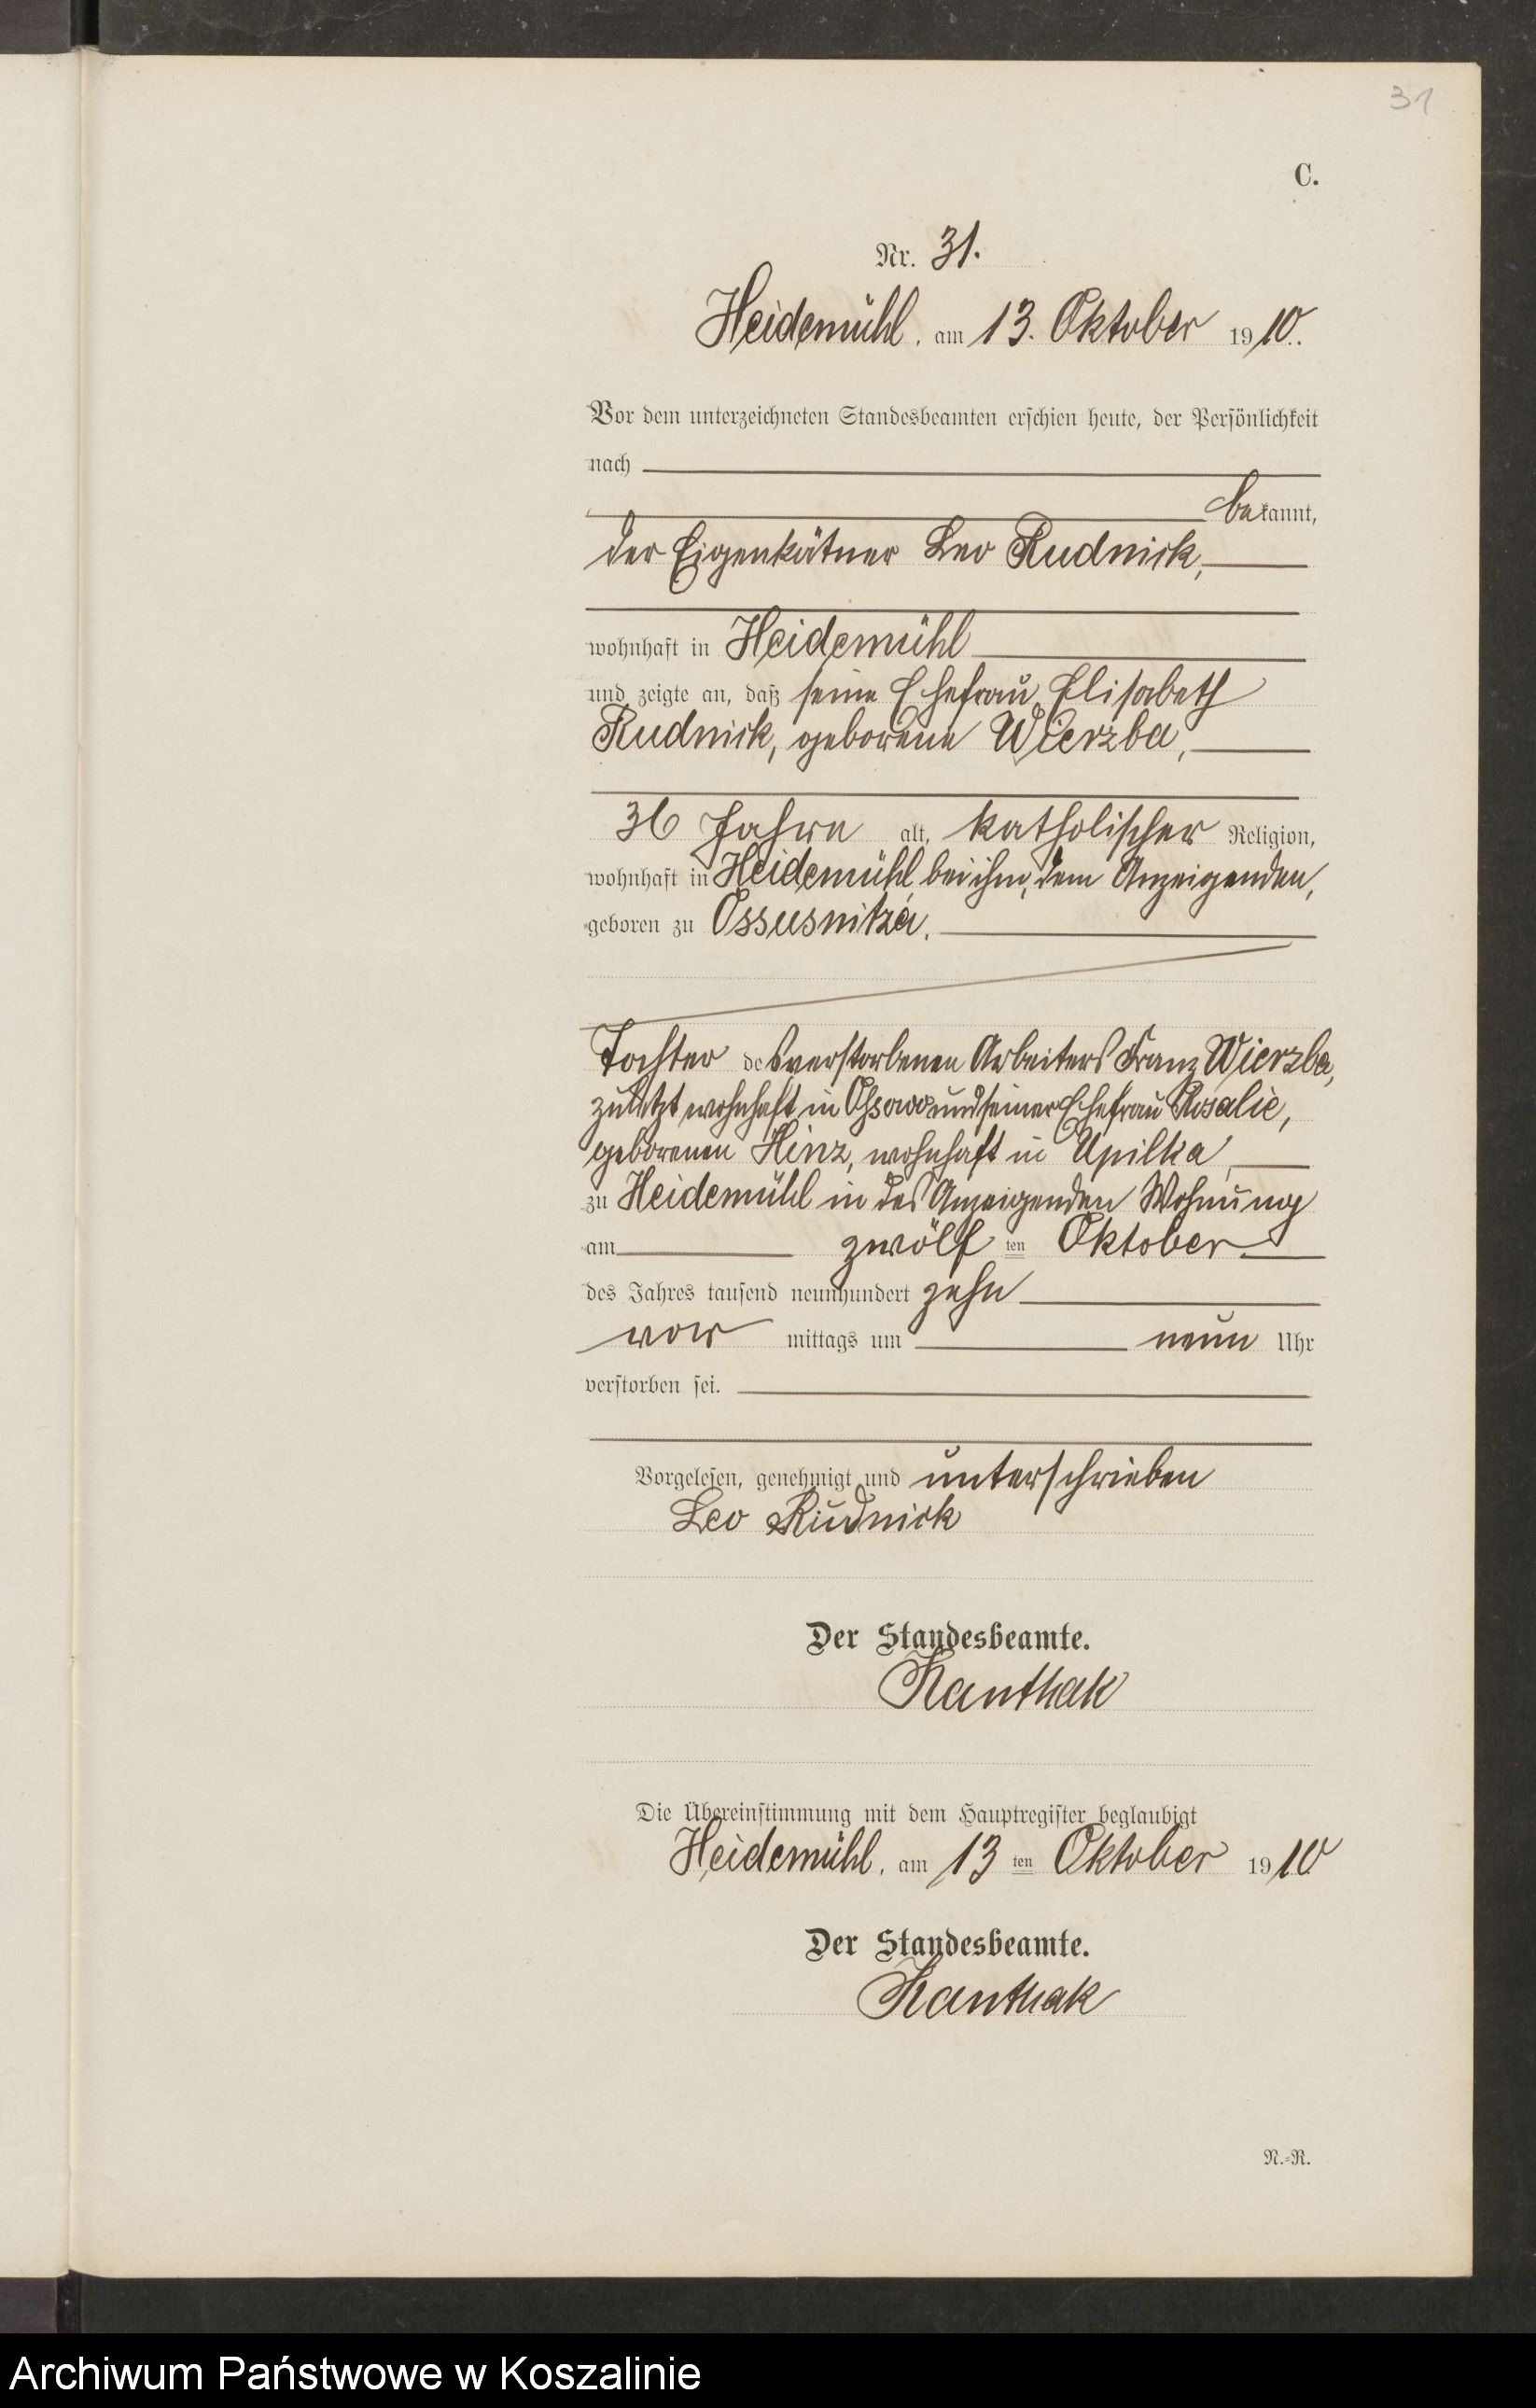 31
C.
Nr. 31.
Heidemühl, am 13. Oktober 1910.
Vor dem unterzeichneten Standesbeamten erschien heute, der Persönlichkeit
nach
bekannt,
der Eigenkätner Leo Rudnick,
wohnhaft in Heidemühl
und zeigte an, daß seine Ehefrau Elisabeth
Rudnick, geborene Wierzba,
36 Jahre alt, katholischer Religion,
wohnhaft in Heidemühl bei ihm, dem Anzeigenden,
geboren zu Ossusnitza,
Tochter des verstorbenen Arbeiters Franz Wierzba,
zuletzt wohnhaft in Ossowo und seiner Ehefrau Rosalie,
geborenen Hinz, wohnhaft in Upilka,
zu Heidemühl in des Anzeigenden Wohnung
am zwölften Oktober
des Jahres tausend neunhundert zehn
vor mittags um neun Uhr
verstorben sei.
Vorgelesen, genehmigt und unterschrieben
Leo Rudnick
Der Standesbeamte.
Kanthak
Die Übereinstimmung mit dem Hauptregister beglaubigt
Heidemühl, am 13ten Oktober 1910
Der Standesbeamte.
Kanthak
N.-R.
Archiwum Państwowe w Koszalinie